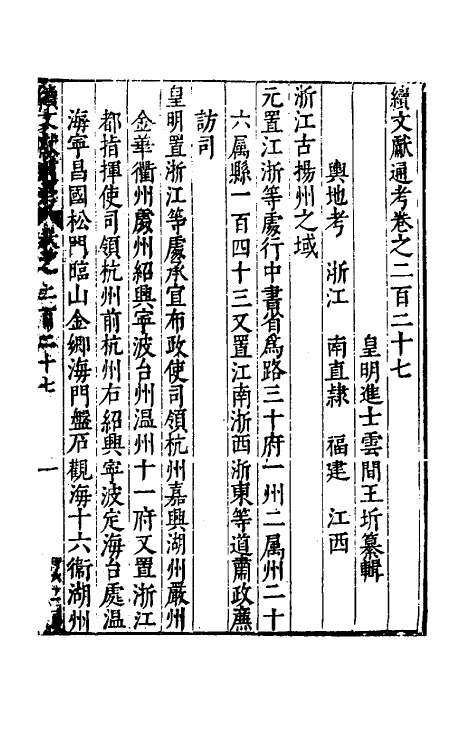 續文獻通考卷之二百二十七
皇明進士雲間王圻纂輯
輿地考 浙江 南直隸 福建 江西
浙江古揚州之域
元置江浙等處行中書省爲路三十府一州二属州二十
六属縣一百四十三又置江南浙西浙東等道肅政廉
訪司
皇明置浙江等處承宣布政使司領杭州嘉興湖州嚴州
金華衢州處州紹興寧波台州温州十一府又置浙江
都指揮使司領杭州前杭州右紹興寧波定海台處温
海寧昌國松門臨山金鄉海門盤石觀海十六衞湖州
續文獻通考 卷之二百二十七 一